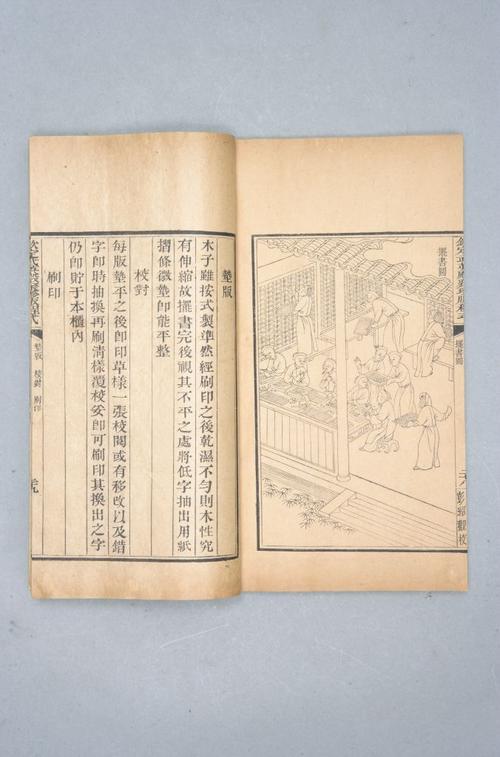 欽定武英殿聚珍版程式
擺書圖
彭紹觀校
擺書圖
墊版
木子雖按式製準然經刷印之後乾濕不勻則木性究
有伸縮故擺書完後視其不平之處將低字抽出用紙
摺條微墊即能平整
校對
每版墊平之後即印草樣一張校閱或有移改以及錯
字即時抽換再刷清樣覆校妥即可刷印其換出之字
仍即貯于本櫃內
刷印
欽定武英殿聚珍版程式
墊版 校對 刷印